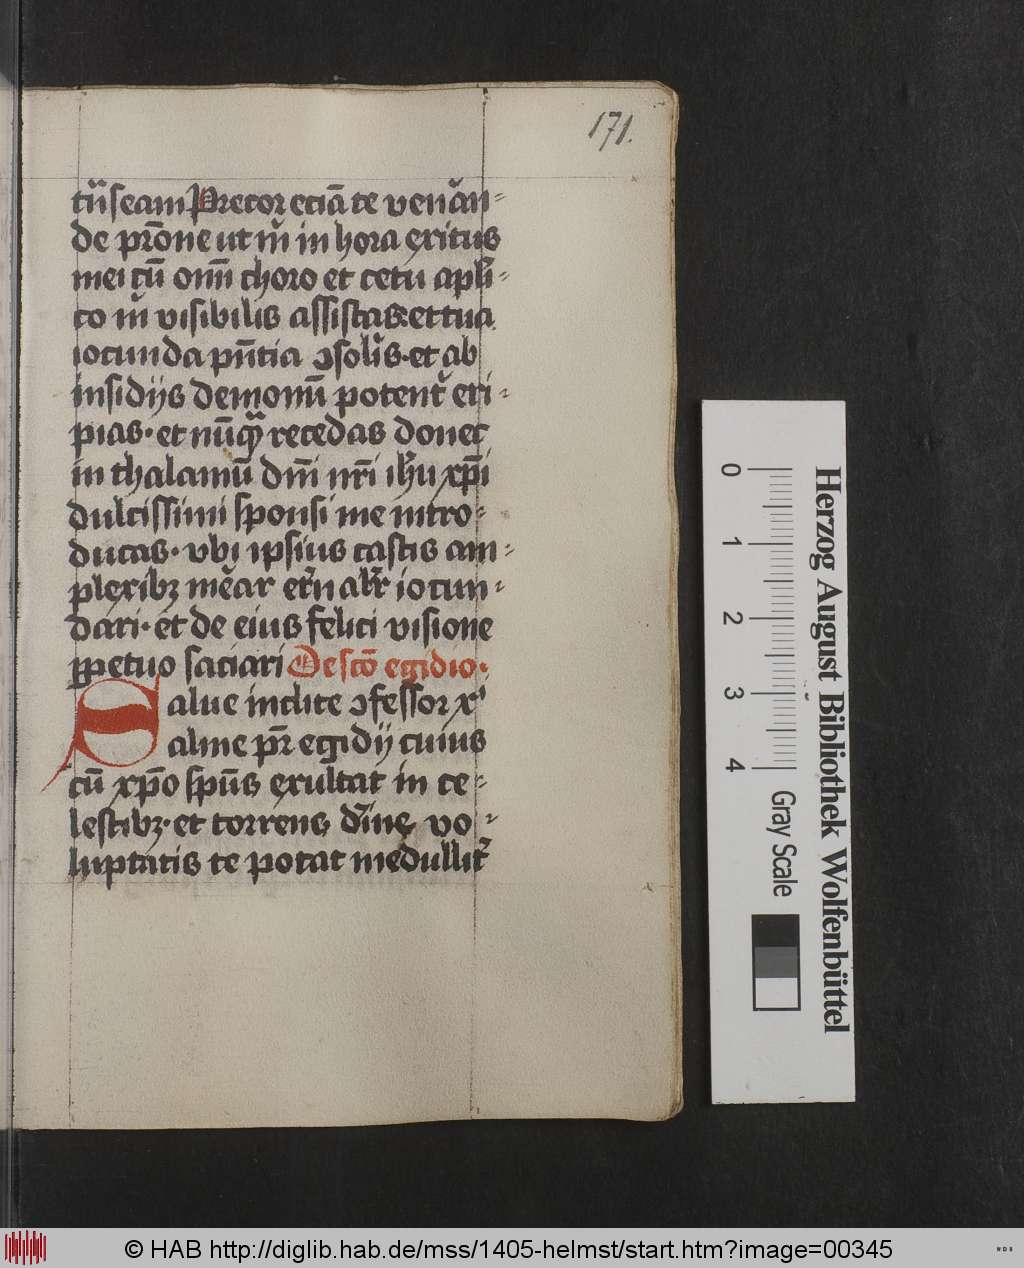 171.
tu̅seam Precor ecia̅ te vena̅n⸗
de pr̅one ut m̅ in hora exitus
mei cu̅ omi̅ choro et cetu apl̅i⸗
co m̅ visibilis assistas. et tua
iocunda pn̅tia ꝯsol̅is. et ab
insidijs demonu̅ potent᷑ eri⸗
pias. et nu̅qᷓ recedas donec
in thalamu̅ dm̅i nr̅i ih̅u xp̅i
dulcissimi sponsi me intro⸗
ducas. vbi ipsius castis am⸗
plexibꝫ me᷑ar et᷑n al᷑r iocun⸗
dari. et de eius felici visione
ꝑpetuo saciari De sc̅o egidio.
Salue inclite ꝯfessor xꝰ
alme pr̅ egidij cuius
cu̅ xp̅o sp̅us exultat in ce⸗
lestibꝫ. et torrens di̅ine vo⸗
luptatis te potat medullit᷑
Herzog August Bibliothek Wolfenbüttel
0 1 2 3 4 Gray Scale
© HAB http://diglib.hab.de/mss/1405-helmst/start.htm?image=00345